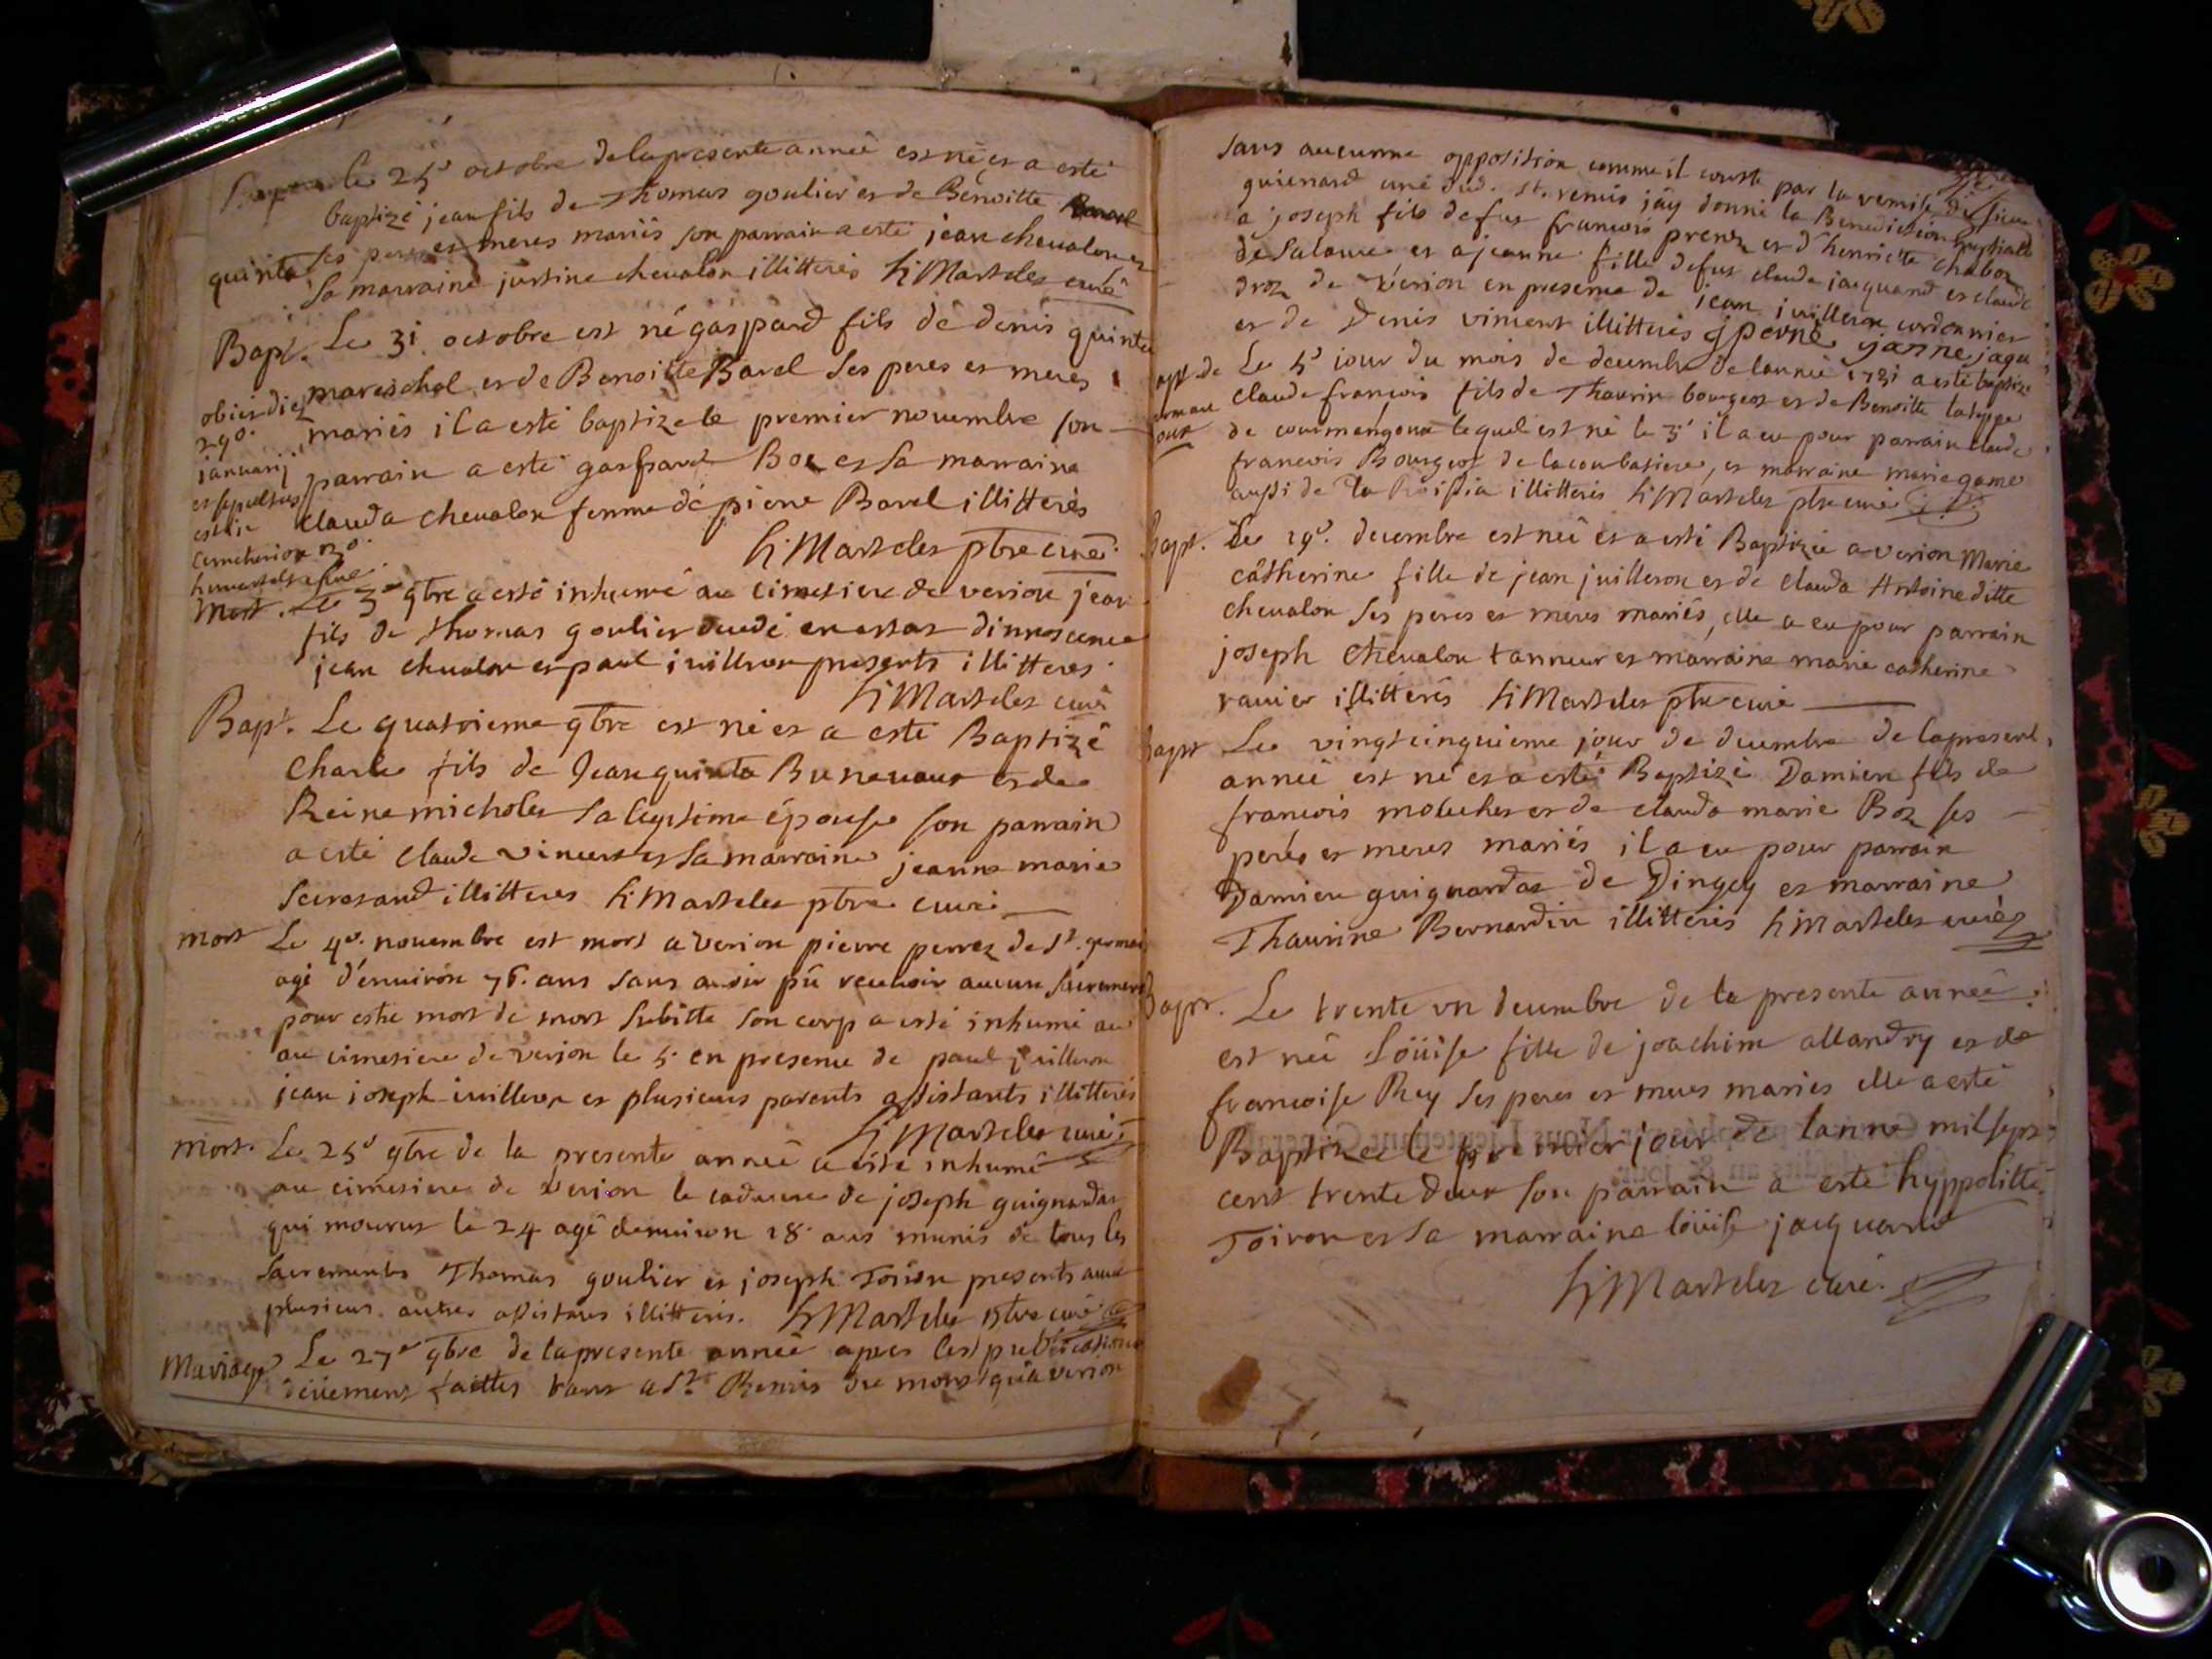 le 25e octobre de la presente anneé est né et a esté
baptizé jean fils de Thomas goulier et de Benoitte Bavel
ses peres et meres mariés son parrain a esté jean chevalon et
quinta
sa marraine justine chevalon illitterés h Martelez curé
Bapt. Le 31 octobre est né gaspard fils de denis quinta
mareschal et de Benoitte Bavel ses peres et meres
mariés il a esté baptize le premier novembre son
parrain a esté gaspard Boz et sa marraine
clauda chevalon femme de pierre Bavel illitterés
h Martelez ptre curé
obiit die
29o.
januarij
et sepultus
est in
cemeterio
Mort. Le 3e 9bre a esté inhumé au cimetiere de verion jean
fils de thomas goulier decedé en estat d'innocence
jean chevalon et paul juilleron presents illitteres.
h Martelez curé
Bapt. Le quatrieme 9bre est né et a esté Baptizé
Charle fils de Jean quinta Bunevaux et de
Reine micholet sa legitime épouse son parrain
a esté claude vincent et sa marraine jeanne marie
illitteres h Martelez ptre curé
mort Le 4e. novembre est mort a verion pierre perrez de st. germai
agé d'environ 76. ans sans avoir pû recevoir aucun sacrement
pour estre mort de mort subitte son corp a esté inhumé au
au cimetiere de verion le 5. en presence de paul juilleron
jean joseph iuilleron et plusieurs parents assistants illitterés
h Martelez curé
mort. Le 25e 9bre de la presente anneé a esté inhumé
au cimetiere de verion le cadavre de joseph guignardat
qui mourut le 24 agé denviron 18. ans munis de tous les
sacrements Thomas goulier et joseph Toiron presents avec
plusieurs autres assistans illitteris. h Martelez ptre curé
Mariage Le 27e 9bre de la presente anneé apres les publications
deüement faittes tant a St. Remis du mont qu'a verion
sans aucunne opposition comme il conste par la remise du sieur
guienard curé dud. st. remis j'ay donné la Benediction nuptialle
a joseph fils de fut francois prenez et d'henriette chabon
de Salavre et a jeanne fille de fut claude jacquand et claude
droz de verion en presence de jean juilleron cordonnier
et de Denis vincent illitterés j perne janne jaqu
Le 5e jour du mois de decembre de l'anneé 1731 a esté baptize
claude francois fils de Thaurin bourgeoz et de Benoitte
de courmangoux lequel est né le 3e il a eu pour parrain claude
francois Bourgeoz de la combatiere, et marraine marie game
aussi de illitterés h Martelez ptre curé
Bapt. Le 19e. decembre est neé et a esté Baptizée a verion Marie
Catherine fille de jean juilleron et de clauda Antoine ditte
chevalon ses peres et meres mariés, elle a eu pour parrain
joseph Chevalon tanneur et marraine marie catherine
ravier illitterés h Martelez ptre curé
bapt Le vingt cinquieme jour de decembre de la present
anneé est né et a esté Baptizé Damien fils de
francois molucher et de clauda marie Boz ses
perés et meres mariés il a eu pour parrain
Damien guignardat de Dingey et marraine
Thaurine Bernardin illitterés h Martelez curé
Bapt. Le trente un decembre de la presente anneé
est neé Loüise fille de joachim allandry et de
francoise Rey ses peres et meres mariés elle a esté
Baptizeé le premier jour de lanné mil sept
cent trente deux son parrain a esté hyppolitte
Toiron et sa marraine loüise jacquand
h Martelez curé.